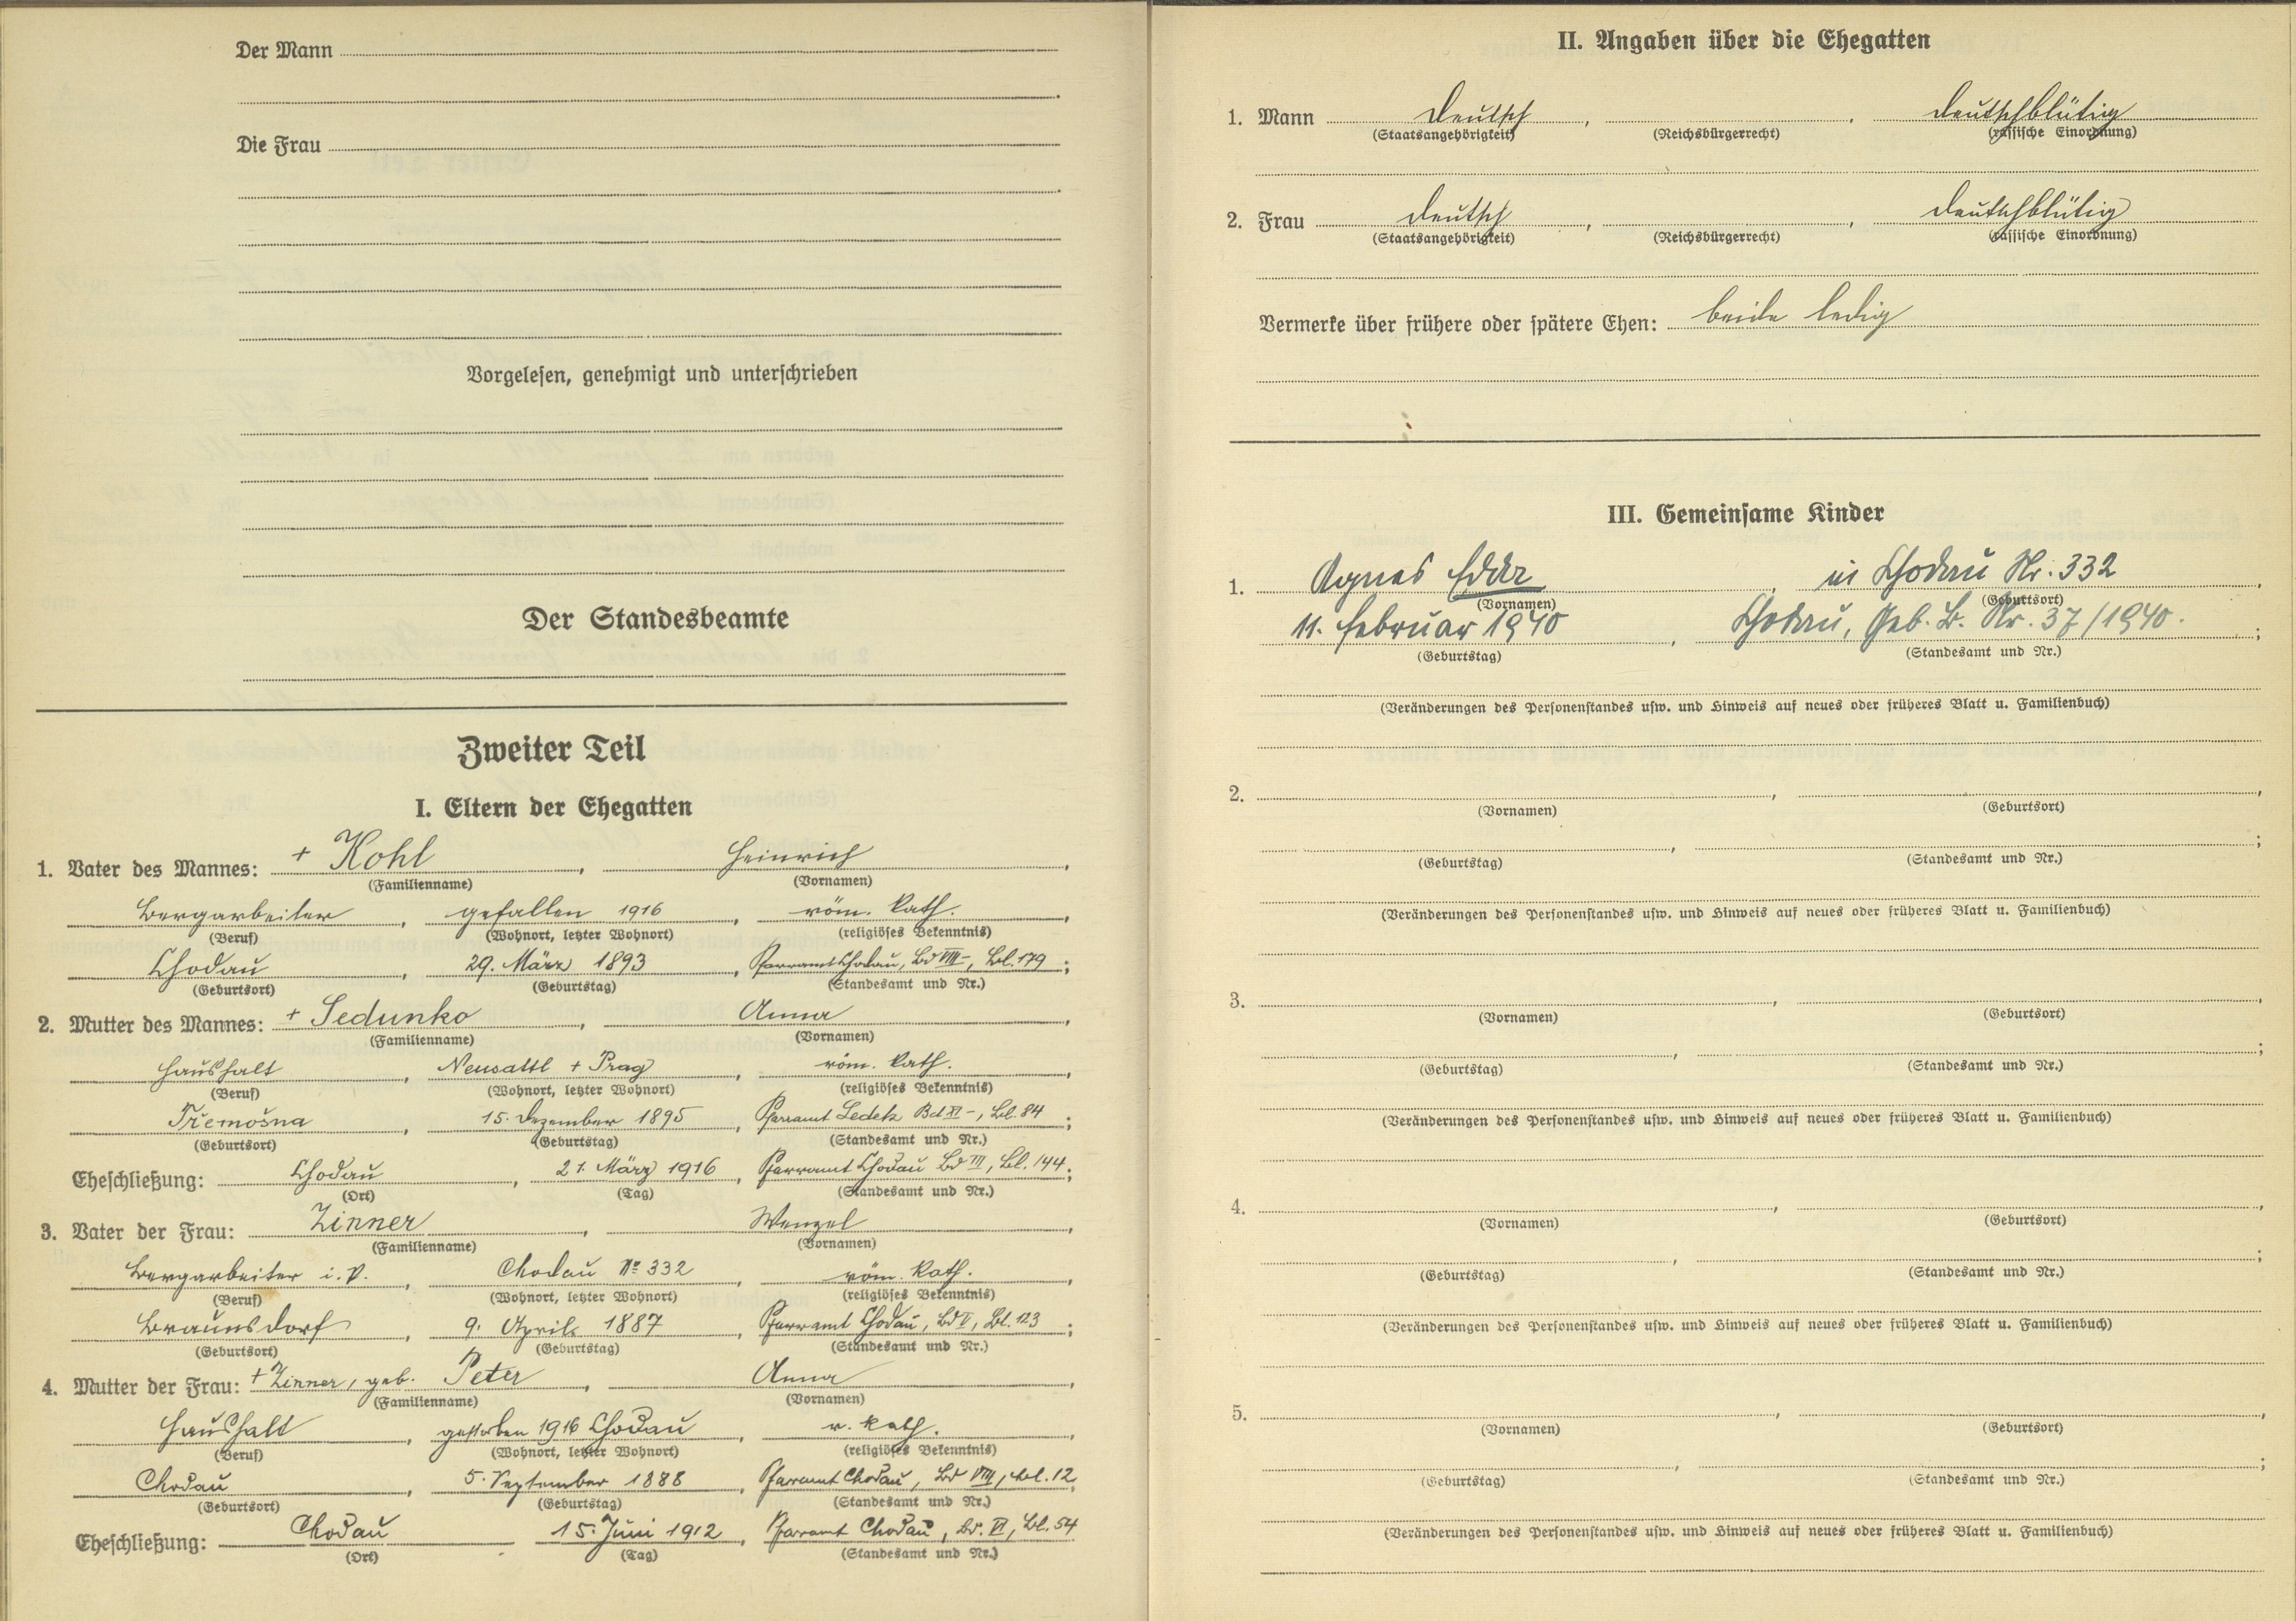 Der Mann
Die Frau
Vorgelesen, genehmigt und unterschrieben
Der Standesbeamte
Zweiter Teil
I. Eltern der Ehegatten
1. Vater des Mannes: + Kohl, Heinrich,
(Familienname) (Vornamen)
Bergarbeiter, gefallen 1916, röm. kath.,
(Beruf) (Wohnort, letzter Wohnort) (religiöses Bekenntnis)
Chodau, 29. März 1893, Pfarramt Chodau, Bd VIII-, Bl. 179;
(Geburtsort) (Geburtstag) (Standesamt und Nr.)
2. Mutter des Mannes: + Sedunko, Anna,
(Familienname) (Vornamen)
Haushalt, Neusattl + Prag, röm. kath.,
(Beruf) (Wohnort, letzter Wohnort) (religiöses Bekenntnis)
Třemošna, 15. Dezember 1895, Pfarramt Ledetz Bd XI-, Bl. 84;
(Geburtsort) (Geburtstag) (Standesamt und Nr.)
Eheschließung: Chodau, 21. März 1916, Pfarramt Chodau Bd III, Bl. 144;
(Ort) (Tag) (Standesamt und Nr.)
3. Vater der Frau: Zinner, Wenzel,
(Familienname) (Vornamen)
Bergarbeiter i. P., Chodau No 332, röm. kath.,
(Beruf) (Wohnort, letzter Wohnort) (religiöses Bekenntnis)
Braunsdorf, 9. April 1887, Pfarramt Chodau, Bd V, Bl. 123;
(Geburtsort) (Geburtstag) (Standesamt und Nr.)
4. Mutter der Frau: + Zinner, geb. Peter, Anna,
(Familienname) (Vornamen)
Haushalt, gestorben 1916 Chodau, r. kath.,
(Beruf) (Wohnort, letzter Wohnort) (religiöses Bekenntnis)
Chodau, 5. September 1888, Pfarramt Chodau, Bd VIII, Bl. 12;
(Geburtsort) (Geburtstag) (Standesamt und Nr.)
Eheschließung: Chodau 15. Juni 1912, Pfarramt Chodau, Bd. VI, Bl. 54
(Ort) (Tag) (Standesamt und Nr.)
II. Angaben über die Ehegatten
1. Mann Deutsch, , deutschblütig
(Staatsangehörigkeit) (Reichsbürgerrecht) (rassische Einordnung)
2. Frau Deutsch, , deutschblütig
(Staatsangehörigkeit) (Reichsbürgerrecht) (rassische Einordnung)
Vermerke über frühere oder spätere Ehen: beide ledig
III. Gemeinsame Kinder
1. Agnes Edda, in Chodau Nr. 332,
(Vornamen) (Geburtsort)
11. Februar 1940, Chodau, Geb. B. Nr. 37/1940.;
(Geburtstag) (Standesamt und Nr.)
(Veränderungen des Personenstandes usw. und Hinweis auf neues oder früheres Blatt u. Familienbuch)
2. , ,
(Vornamen) (Geburtsort)
, ;
(Geburtstag) (Standesamt und Nr.)
(Veränderungen des Personenstandes usw. und Hinweis auf neues oder früheres Blatt u. Familienbuch)
3. , ,
(Vornamen) (Geburtsort)
, ;
(Geburtstag) (Standesamt und Nr.)
(Veränderungen des Personenstandes usw. und Hinweis auf neues oder früheres Blatt u. Familienbuch)
4. , ,
(Vornamen) (Geburtsort)
, ;
(Geburtstag) (Standesamt und Nr.)
(Veränderungen des Personenstandes usw. und Hinweis auf neues oder früheres Blatt u. Familienbuch)
5. , ,
(Vornamen) (Geburtsort)
, ;
(Geburtstag) (Standesamt und Nr.)
(Veränderungen des Personenstandes usw. und Hinweis auf neues oder früheres Blatt u. Familienbuch)